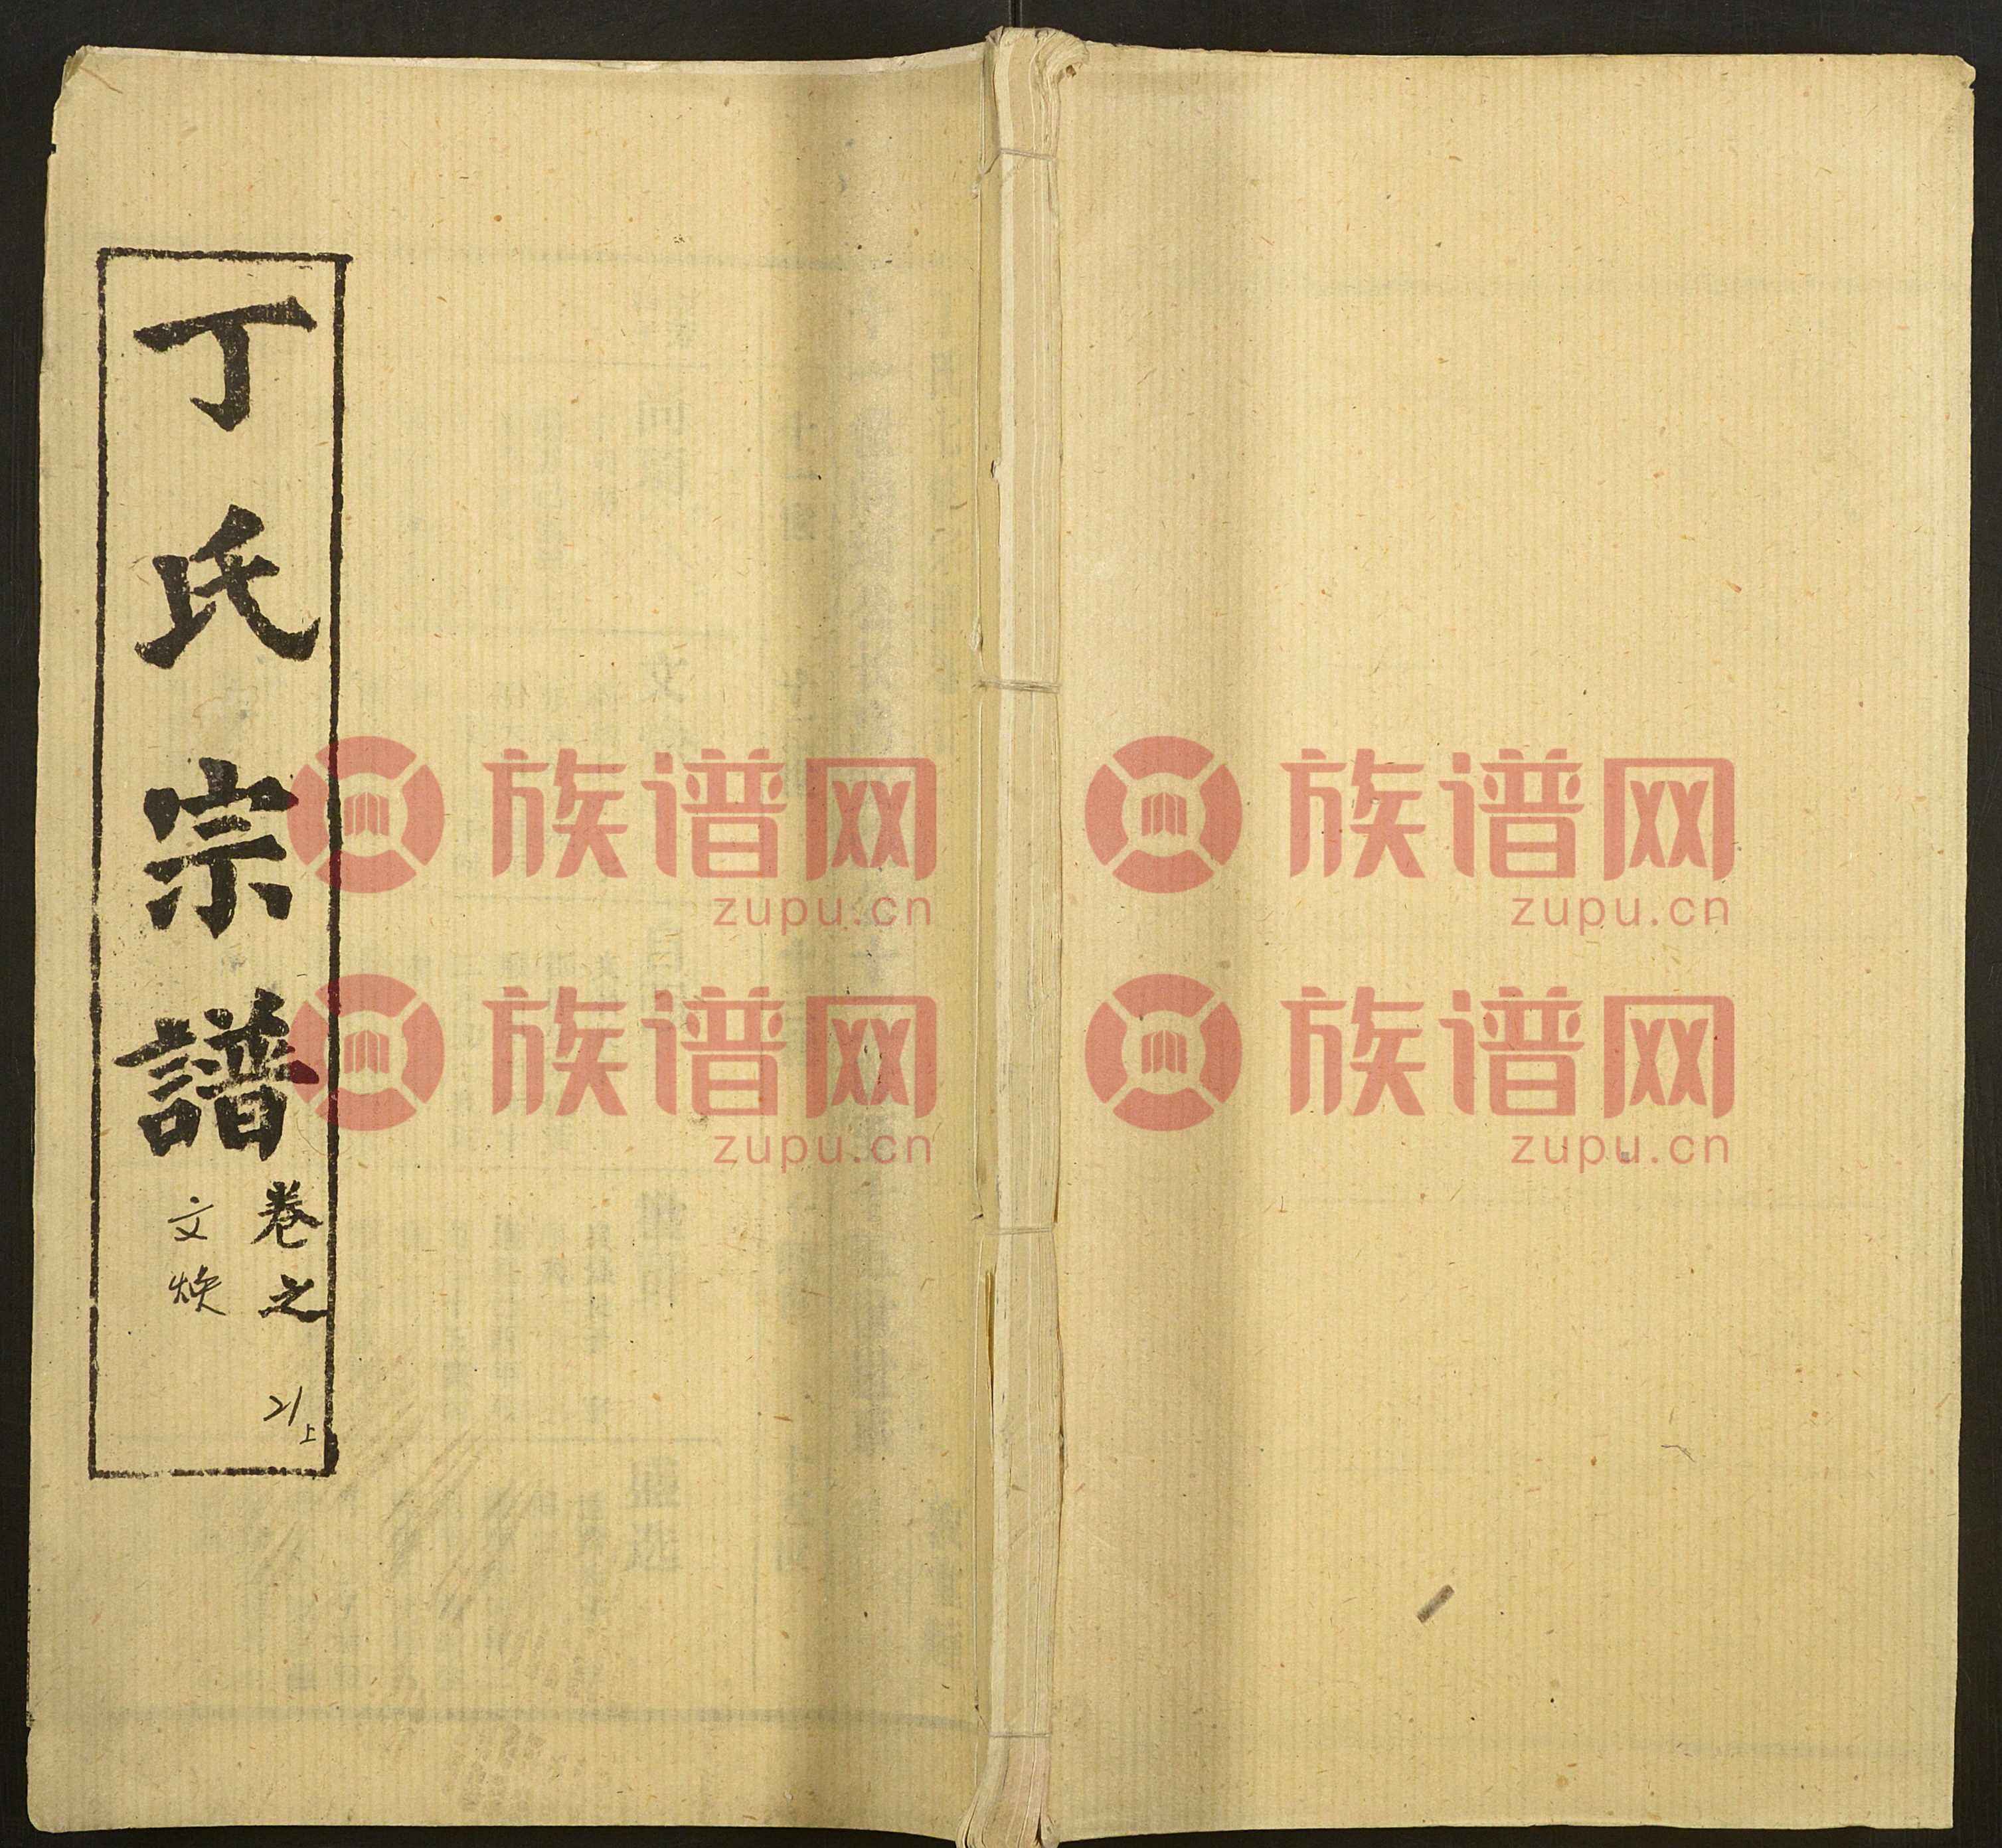 丁氏宗譜
卷之 21上
文焕
族谱网
zupu.cn
族谱网
zupu.cn
族谱网
zupu.cn
族谱网
zupu.cn